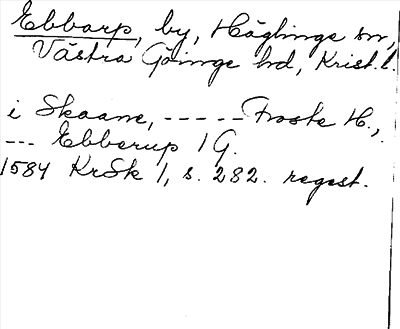 Ebbarp, by, Häglinge sn,
Västra Göinge hd, Krist. l.
i Skaane, ----- Froste H.,
--- Ebberup 1 G.
1584 KrSk 1, s. 282. regest.